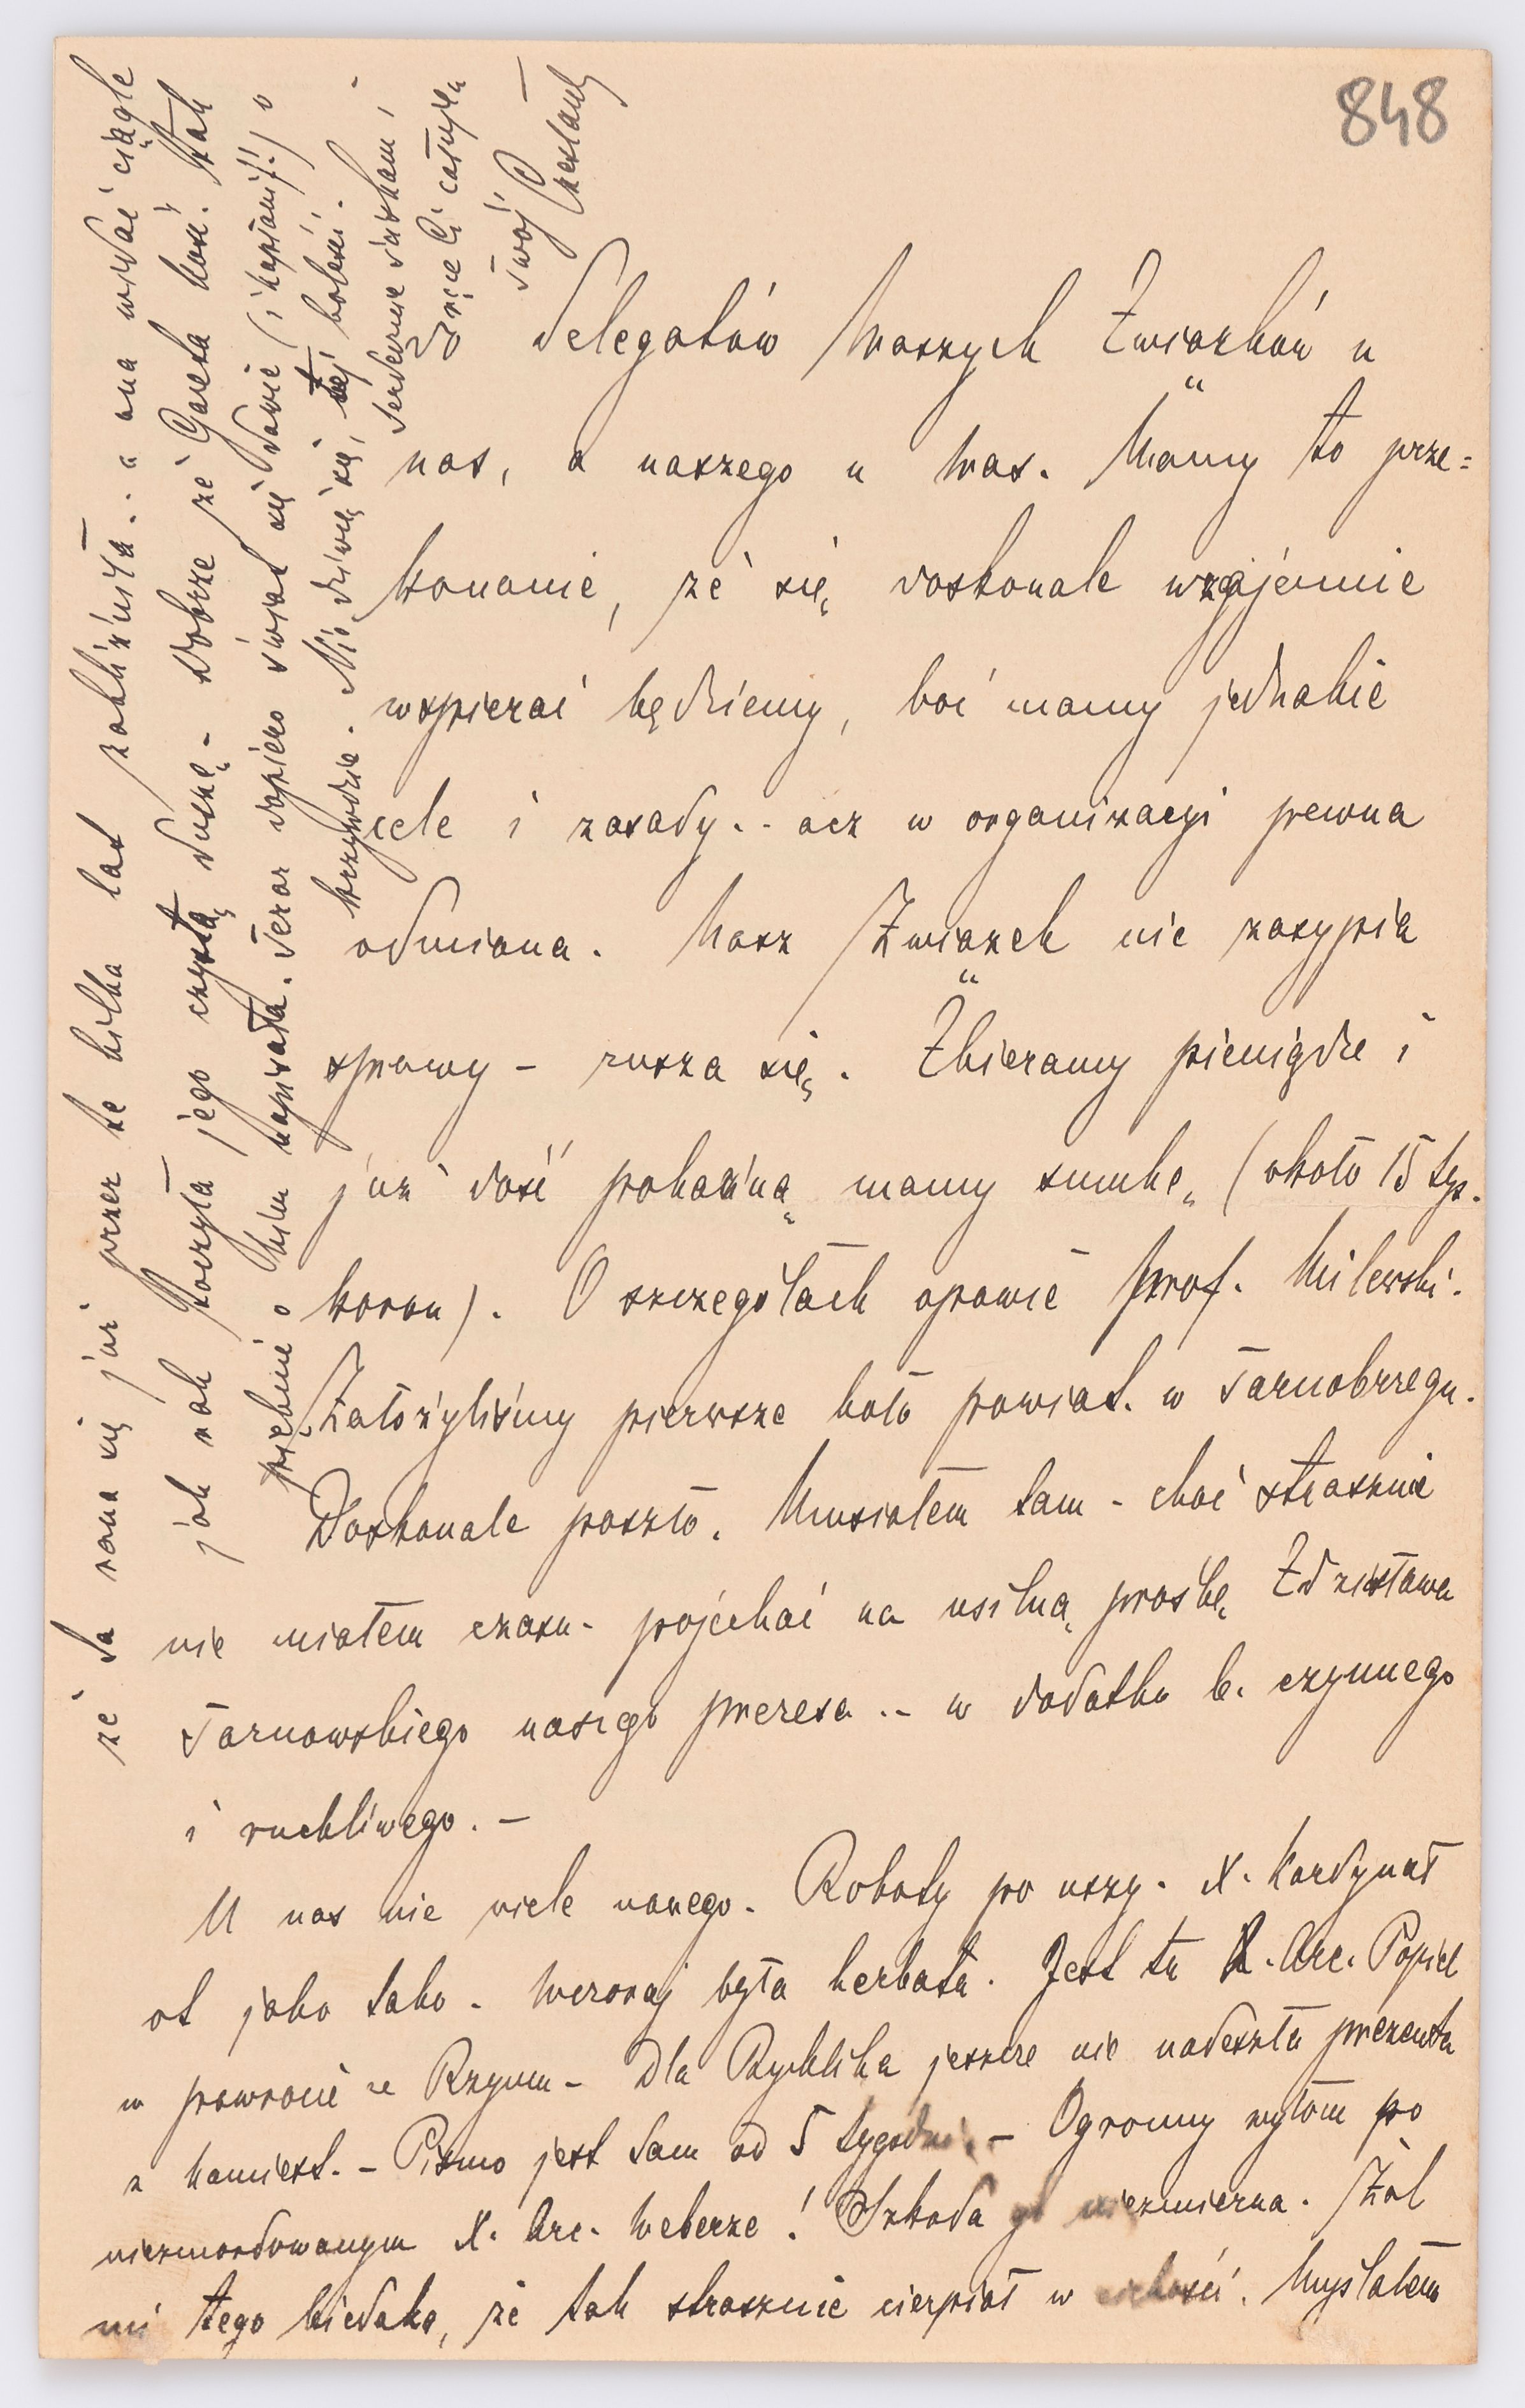 848
delegatów Waszych Związków u
nas, a naszego u Was. Mamy to prze=
konanie, że się doskonale wzajemnie
wspierać będziemy, boć mamy jednakie
cele i zasady.. acz w organizacyi pewna
odmiana. Nasz Związek nie zasypia
sprawy - rusza się. Zbieramy pieniądze i
już dość pokaźną mamy sumkę (około 15 tys.
koron). O szczegółach opowie Prof. Milewski.
Założyliśmy pierwsze koło powiat. w Tarnobrzegu.
Doskonale poszło. Musiałem tam - choć strasznie
nie miałem czasu - pojechać na usilną prośbę Zdzisława
Tarnowskiego naszego prezesa .. w dodatku b. czynnego
i ruchliwego. -
U nas nie wiele nowego. Roboty po uszy. X. Kardynał
ot jako tako. Wczoraj była herbata. Jest tu X. Arc. Popiel
w powrocie z Rzymu - Dla Rychlika jeszcze nie nadeszła prezenta
z Namiest. - Pismo jest tam od 5 tygodni. - Ogromny wyłom po
niezmordowanym X. Arc. Weberze! Szkoda go niezmierna. Żal
mi tego biedaka, że tak strasznie cierpiał w cichości. Myślałem
że ta rana się już przez te kilka lat zabliźniła .. a ona widać ciągle
jak rak toczyła jego czystą duszę - Dobrze że Gazeta Kość. tak
pięknie o Nim napisała. Teraz dopiero świat się dowie (i kapłani!!) o
krzywdzie. Nie dziwię się, tej boleści.
Serdecznie ściskam i
rącie Ci całuję
Twój Czesław